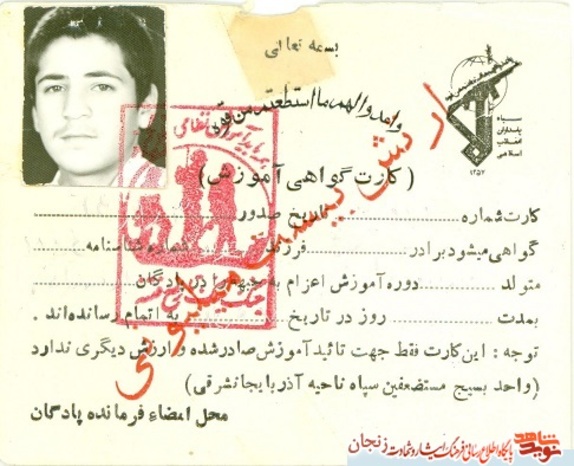 بسمه تعالی
واعدوا لهم ما استطعتم من قوه
سپاه
پاسداران
انقلاب
اسلامی
۱۳۵۷
(کارت گواهی آموزش)
ارتش بیست میلیونی
کارت شماره ........ تاریخ صدور ........
گواهی میشود برادر ........ فرزند ........ شماره شناسنامه ........
متولد ........ دوره آموزش اعزام به جبهه را در پادگان ........
بمدت ........ روز در تاریخ ........ به اتمام رسانده‌اند .
توجه : این کارت فقط جهت تائید آموزش صادر شده و ارزش دیگری ندارد
(واحد بسیج مستضعفین سپاه ناحیه آذربایجانشرقی)
محل امضاء فرمانده پادگان
نوید شاهد
پایگاه اطلاع رسانی فرهنگ ایثار و شهادت زنجان